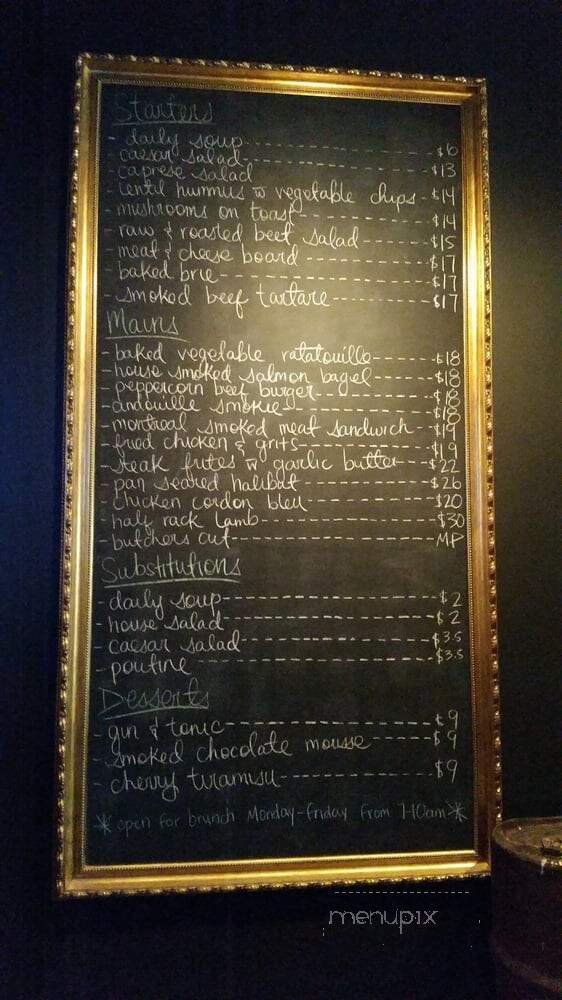 Starters
- daily soup ---- $6
- caesar salad ---- $13
- caprese salad
- lentil hummus w vegetable chips -- $14
- mushrooms on toast ---- $14
- raw & roasted beef salad ---- $15
- meat & cheese board ---- $17
- baked brie ---- $17
- smoked beef tartare ---- $17
Mains
- baked vegetable ratatouille ---- $18
- house smoked salmon bagel ---- $18
- peppercorn beef burger ---- $18
- andouille smokie ---- $18
- montreal smoked meat sandwich ---- $19
- fried chicken & grits ---- $19
- steak frites w garlic butter ---- $22
- pan seared halibut ---- $26
- chicken cordon bleu ---- $20
- half rack lamb ---- $30
- butchers cut ---- MP
Substitutions
- daily soup ---- $2
- house salad ---- $2
- caesar salad ---- $3.5
- poutine ---- $3.5
Desserts
- gin & tonic ---- $9
- smoked chocolate mousse ---- $9
- cherry tiramisu ---- $9
* open for brunch Monday-Friday from 7-10am *
menupix